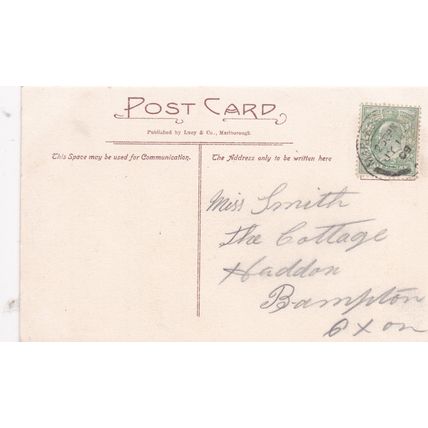 POST CARD
Published by Lucy & Co., Marlborough.
This Space may be used for Communication.
The Address only to be written here
Miss Smith
The Cottage
Haddon
Bampton
Oxon